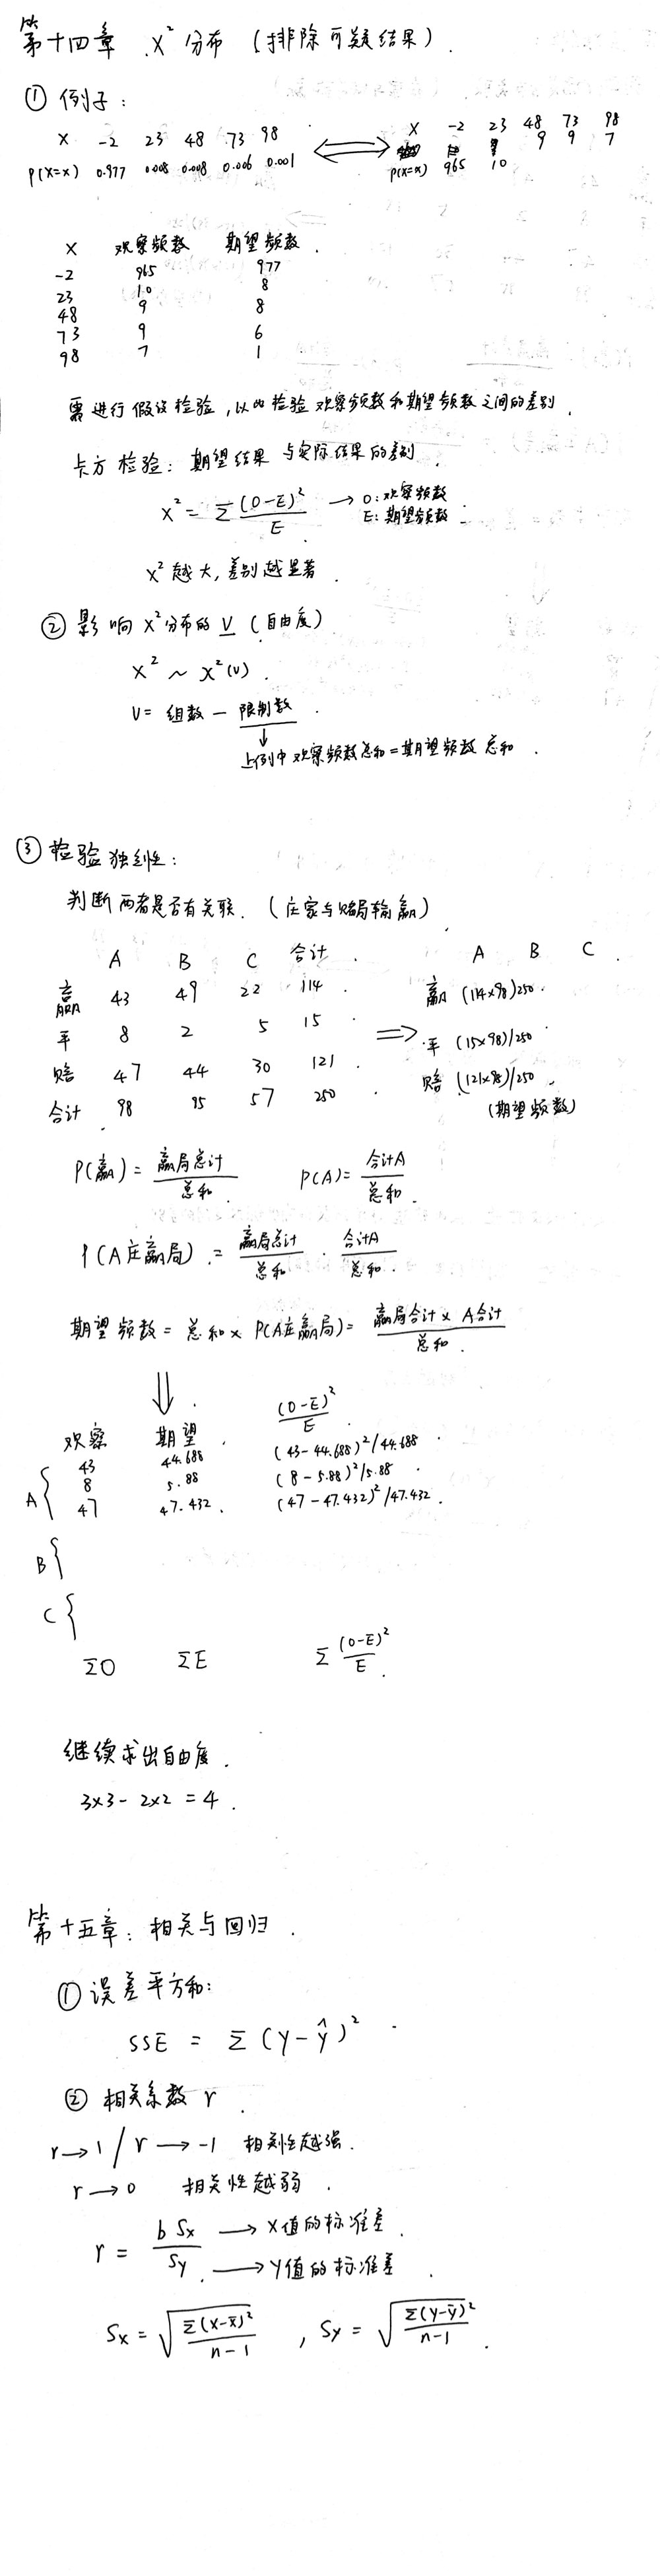 第十四章 X² 分布 (排除可疑结果).
① 例子:
X -2 23 48 73 98 ⟺ X -2 23 48 73 98
P(X=x) 0.977 0.008 0.008 0.006 0.001 P(X=x) 965 10 9 9 7
X 观察频数 期望频数.
-2 965 977
23 10 8
48 9 8
73 9 6
98 7 1
需进行假设检验,以此检验观察频数和期望频数之间的差别.
卡方检验: 期望结果与实际结果的差别.
X² = Σ (O-E)²/E → O:观察频数
E:期望频数.
X² 越大,差别越显著.
② 影响 X² 分布的 V (自由度)
X² ~ X²(V).
V = 组数 - 限制数.
↓
上例中观察频数总和=期望频数总和.
③ 检验独立性:
判断两者是否有关联. (庄家与赌局输赢)
A B C 合计. A B C.
赢 43 49 22 114. 赢 (114×98)/250.
平 8 2 5 15 ⟹ 平 (15×98)/250.
赔 47 44 30 121. 赔 (121×98)/250.
合计 98 95 57 250. (期望频数)
P(赢) = 赢局总计/总和. P(A) = 合计A/总和.
P(A庄赢局) = 赢局总计/总和 · 合计A/总和.
期望频数 = 总和 × P(A庄赢局) = 赢局合计 × A合计/总和.
⇓
观察 期望. (O-E)²/E.
A{ 43 44.688 (43-44.688)²/44.688.
8 5.88 (8-5.88)²/5.88.
47 47.432. (47-47.432)²/47.432.
B{
C{
ΣO ΣE Σ (O-E)²/E.
继续求出自由度.
3×3 - 2×2 = 4.
第十五章: 相关与回归.
① 误差平方和:
SSE = Σ (y-ŷ)².
② 相关系数 r.
r→1 / r→-1 相关性越强.
r→0 相关性越弱.
r = b Sx/Sy → X值的标准差.
→ Y值的标准差.
Sx = √(Σ(x-x̄)²/(n-1)), Sy = √(Σ(y-ȳ)²/(n-1)).